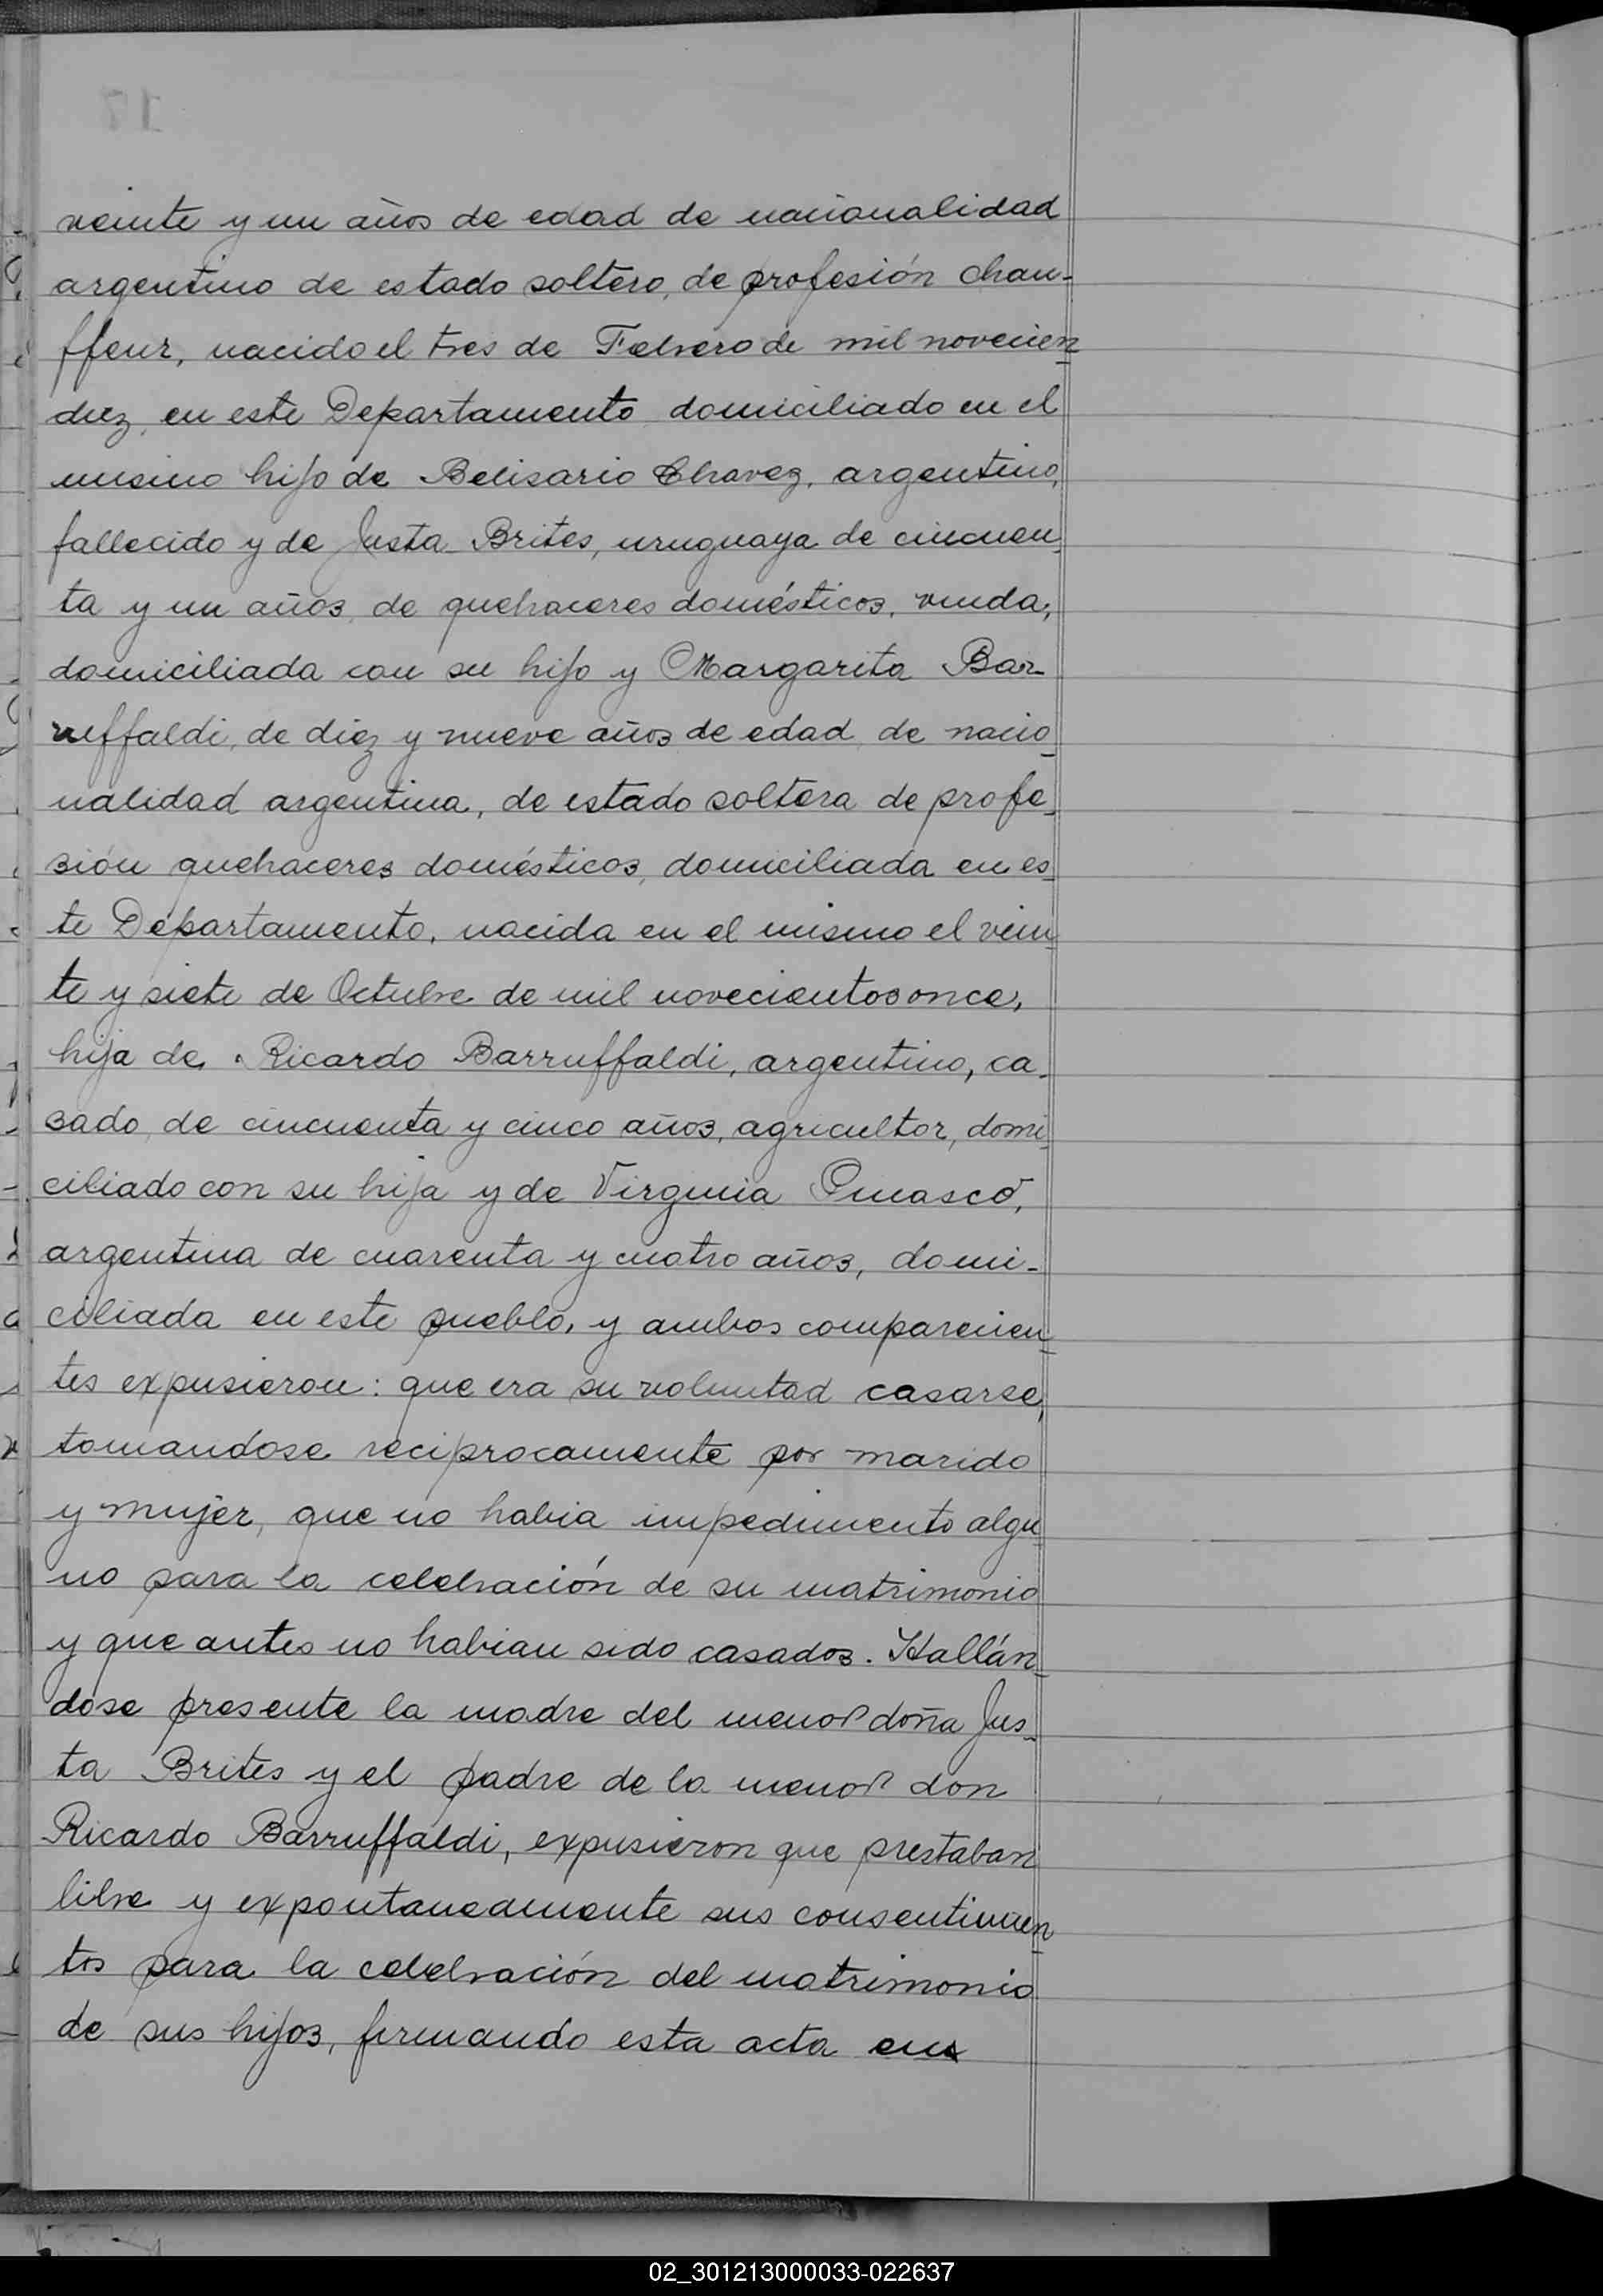 17
veinte y un años de edad de nacionalidad
argentino de estado soltero, de profesión chau-
ffeur, nacido el tres de Febrero de mil novecien
diez, en este Departamento domiciliado en el
mismo hijo de Belisario Chavez, argentino,
fallecido y de Justa Brites, uruguaya de cincuen
ta y un años, de quehaceres domésticos, viuda,
domiciliada con su hijo y Margarita Bar-
ruffaldi, de diez y nueve años de edad, de nacio-
nalidad argentina, de estado soltera de profe-
sión quehaceres domésticos, domiciliada en es-
te Departamento, nacida en el mismo el vein
te y siete de Octubre de mil novecientos once,
hija de Ricardo Barruffaldi, argentino, ca-
sado, de cincuenta y cinco años, agricultor, domi-
ciliado con su hija y de Virginia
argentina de cuarenta y cuatro años, domi-
ciliada en este pueblo, y ambos comparecien-
tes expusieron: que era su voluntad casarse,
tomandose reciprocamente por marido
y mujer, que no habia impedimento algu
no para la celebración de su matrimonio
y que antes no habian sido casados. Hallán-
dose presente la madre del menor doña Jus-
ta Brites y el padre de la menor don
Ricardo Barruffaldi, expusieron que prestaban
libre y expontaneamente sus consentimien-
tos para la celebración del matrimonio
de sus hijos, firmando esta acta en
02_301213000033-022637